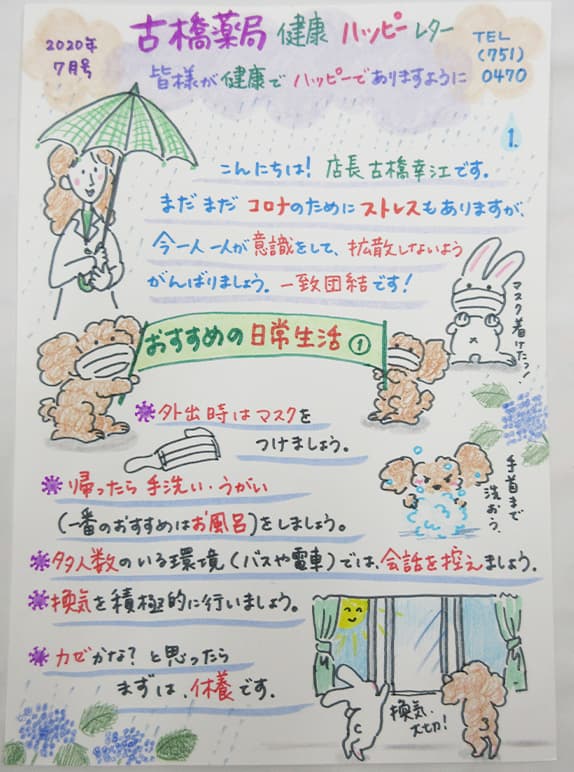 2020年
7月号
古橋薬局 健康 ハッピーレター
TEL
(751)
0470
皆様が健康でハッピーでありますように
1.
こんにちは! 店長 古橋幸江です。
まだまだ コロナのために ストレスもありますが、
今一人一人が意識をして、拡散しないよう
がんばりましょう。一致団結です!
マスク着けたっ!
おすすめの日常生活①
外出時はマスクを
つけましょう。
帰ったら 手洗い・うがい
(一番のおすすめはお風呂)をしましょう。
手首まで
洗おう、
多人数のいる環境(バスや電車)では、会話を控えましょう.
換気を積極的に行いましょう。
カゼかな?と思ったら
まずは、休養です.
換気、
大切!